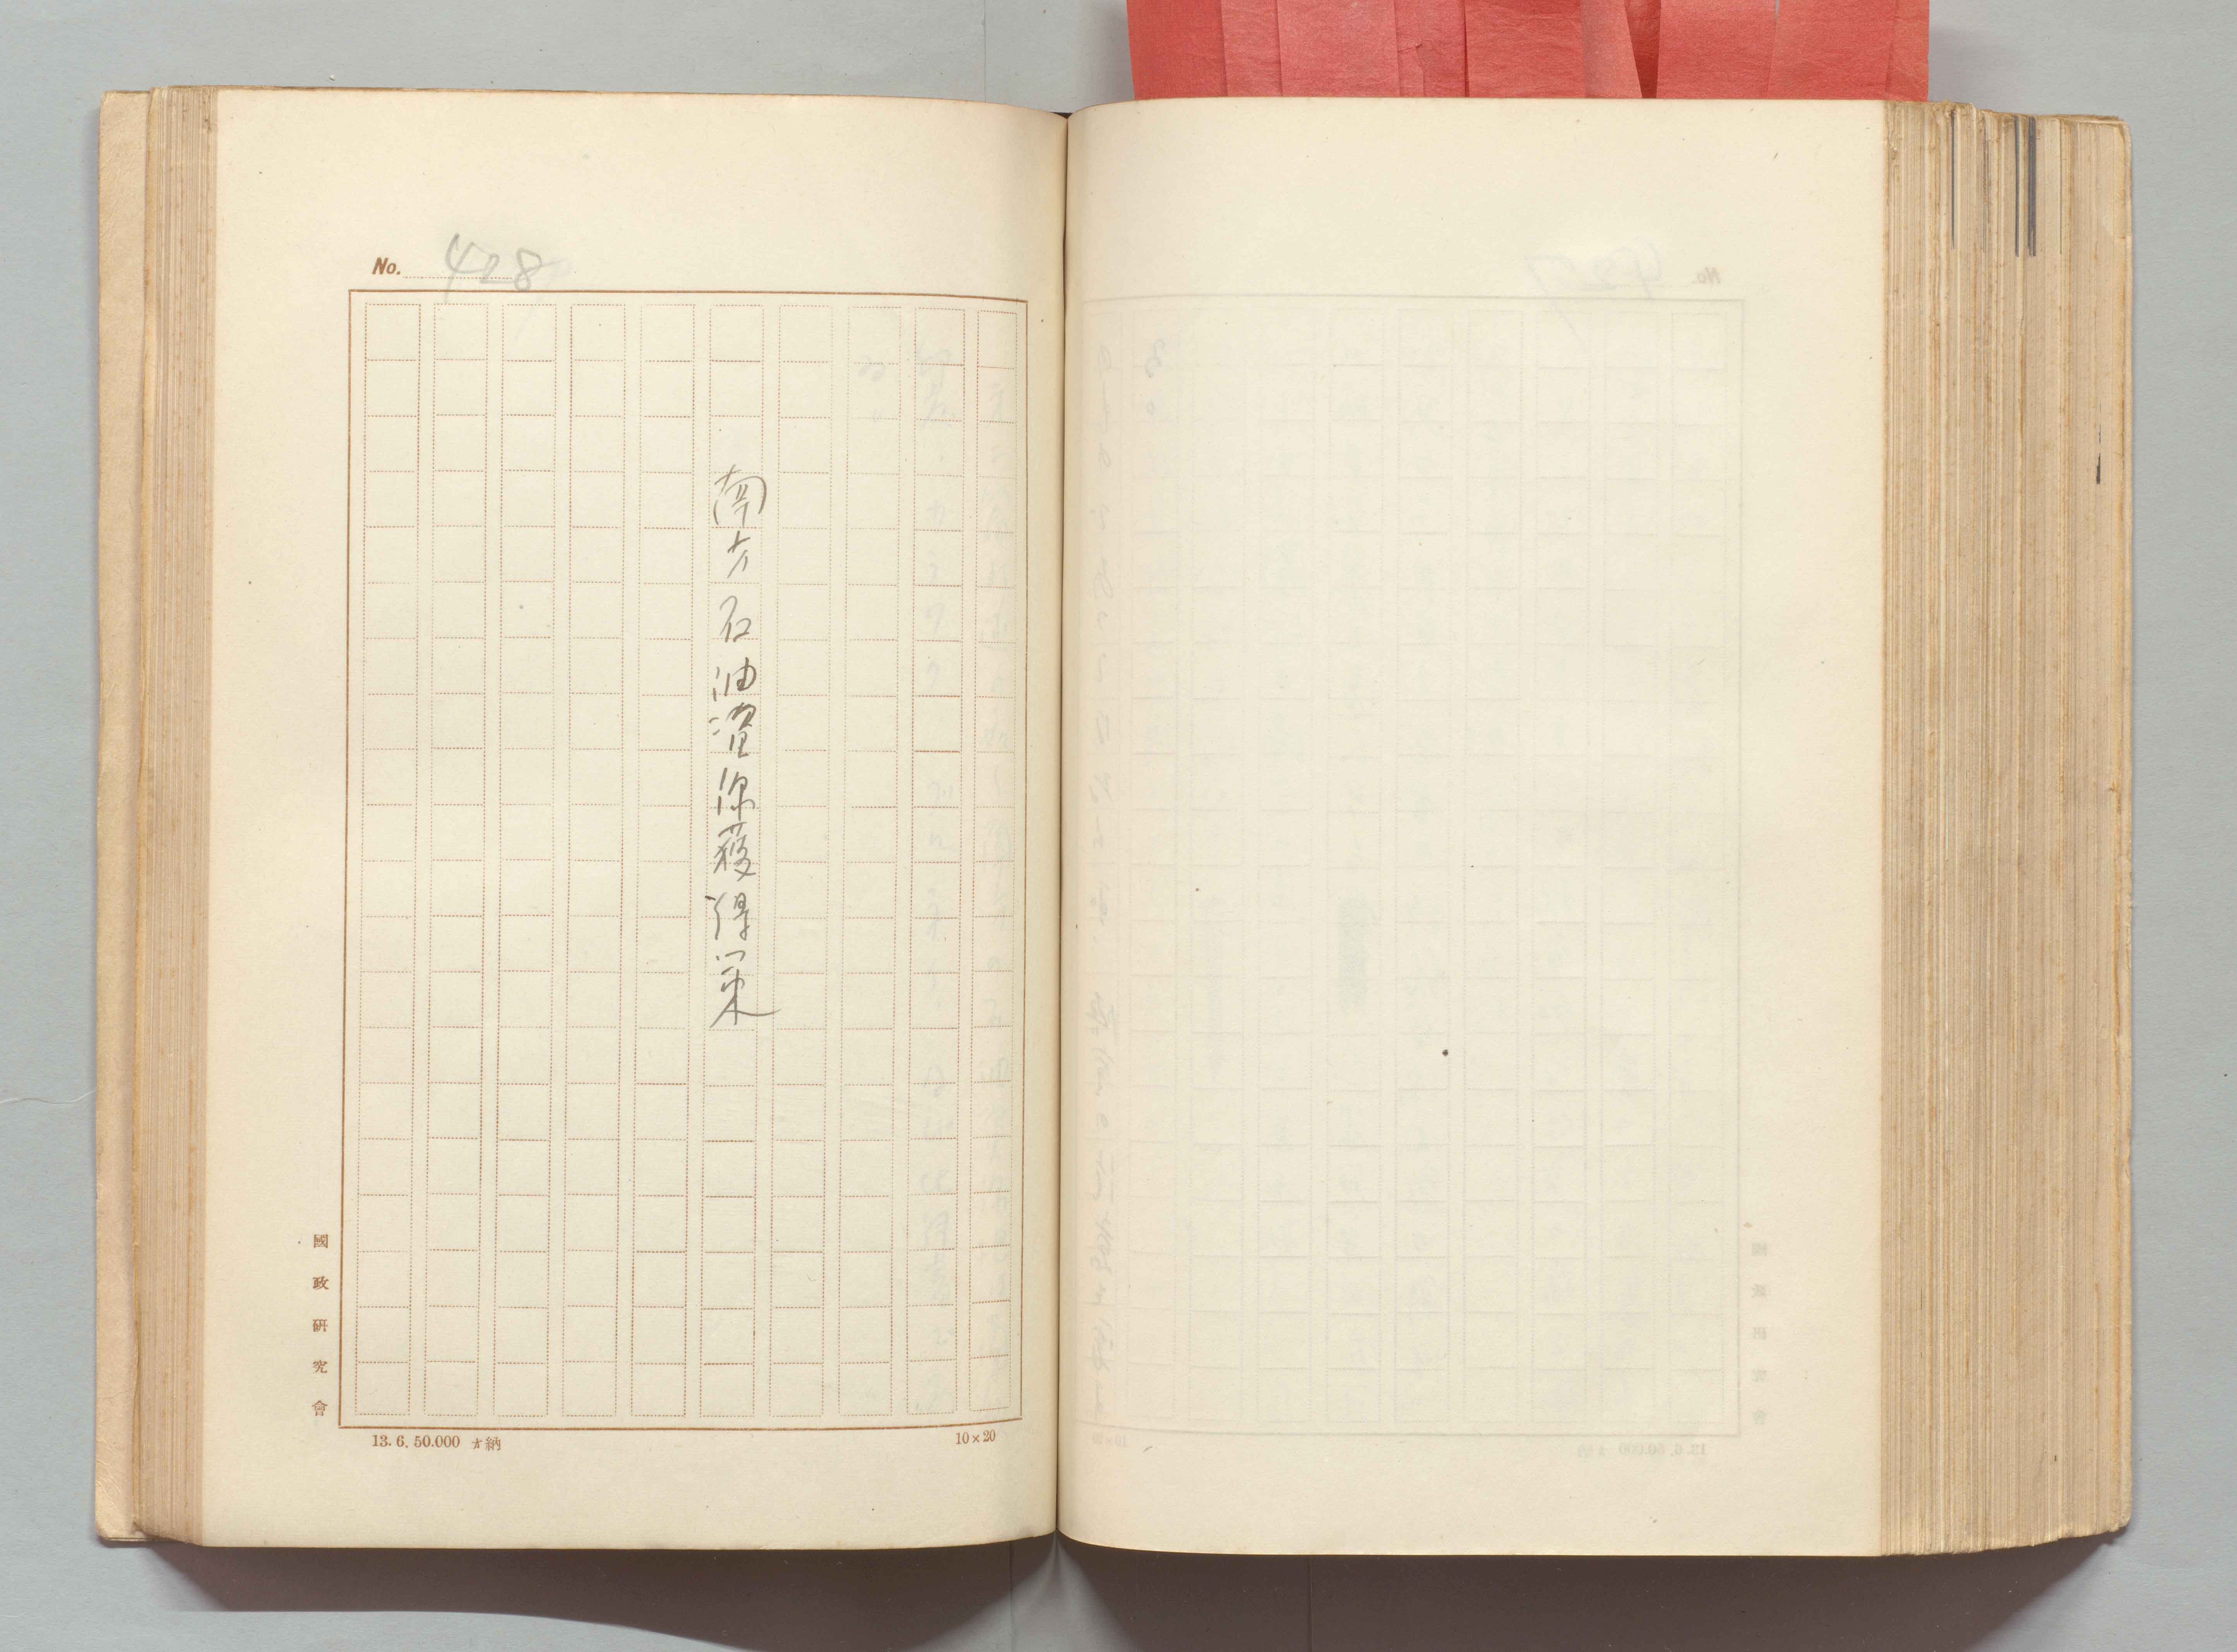 No. 408
南方石油資源獲得策
國政研究會
13. 6. 50.000 才納
10×20